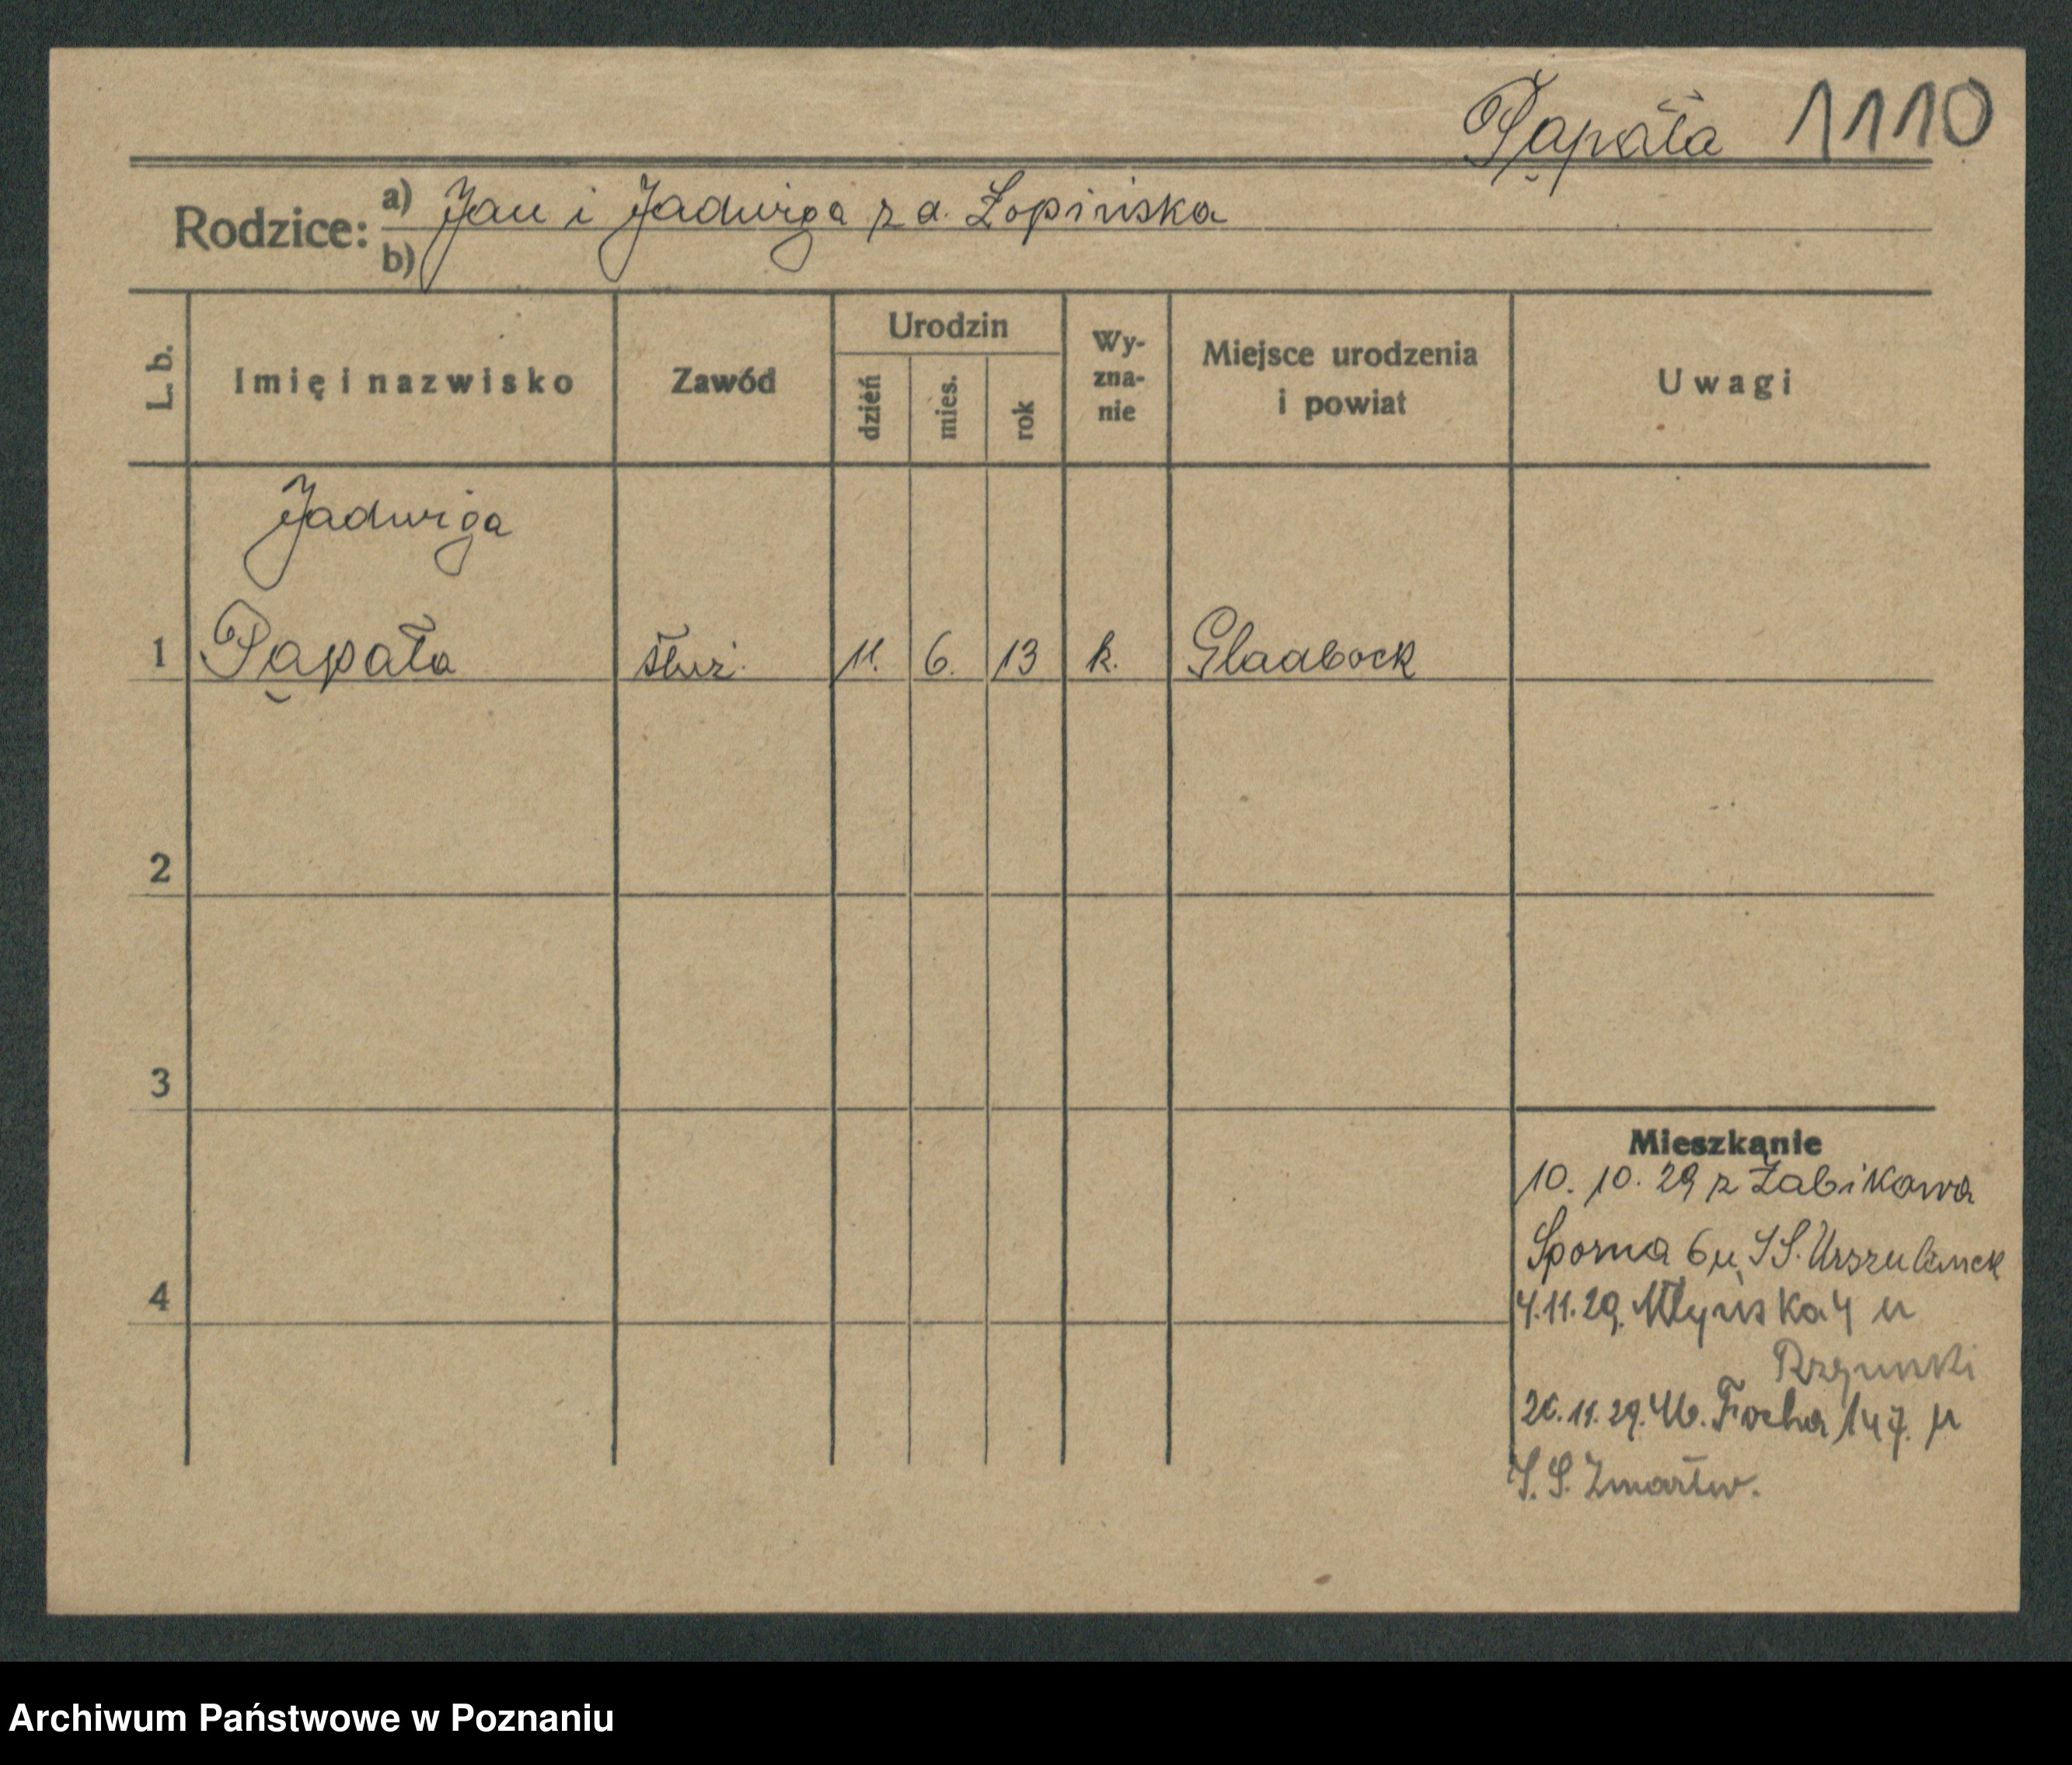 Papała 1110
Rodzice: a) Jan i Jadwiga z d. Łopińska
b)
L. b. Imię i nazwisko Zawód Urodzin dzień mies. rok Wy-zna-nie Miejsce urodzenia i powiat Uwagi
Jadwiga
1 Papała służ. 11. 6. 13 k. Gladbeck
2
3
Mieszkanie
10. 10. 29 z Żabikowa
Sporna 6 u SS. Urszulanek
4 4.11.29. Młyńska 4 u
26.11.29. M. Focha 147. u
S. S. Zmartw.
Archiwum Państwowe w Poznaniu